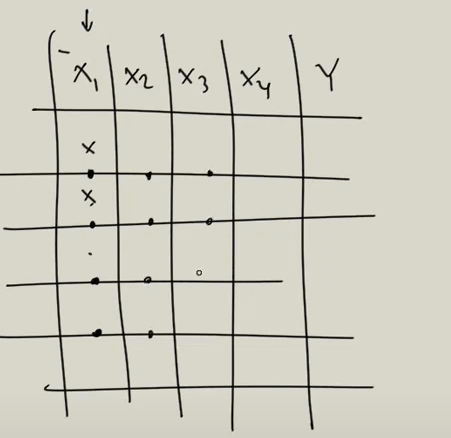 X₁ X₂ X₃ X₄ Y
x
x